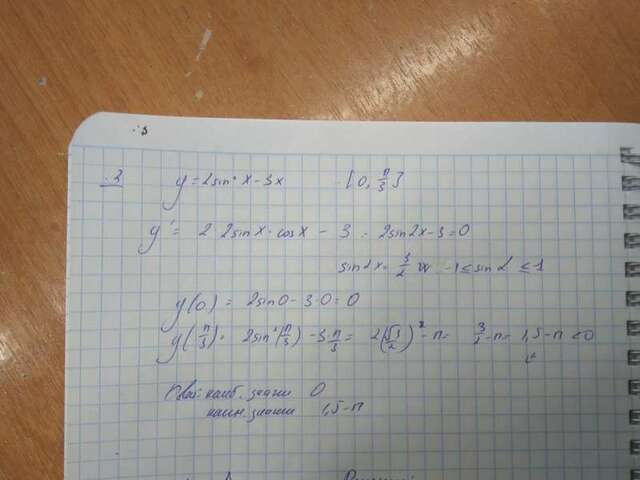 .3 y = 2sin² x - 3x [0, π/3]
y' = 2·2sin x·cos x - 3 = 2sin2x - 3 = 0
sin2x = 3/2 -1 ≤ sin ≤ 1
y(0) = 2sin0 - 3·0 = 0
y(π/3) = 2sin²(π/3) - 3·π/3 = 2(√3/2)² - π = 3/2 - π = 1,5 - π < 0
наиб. значен 0
наим. значен 1,5 - π